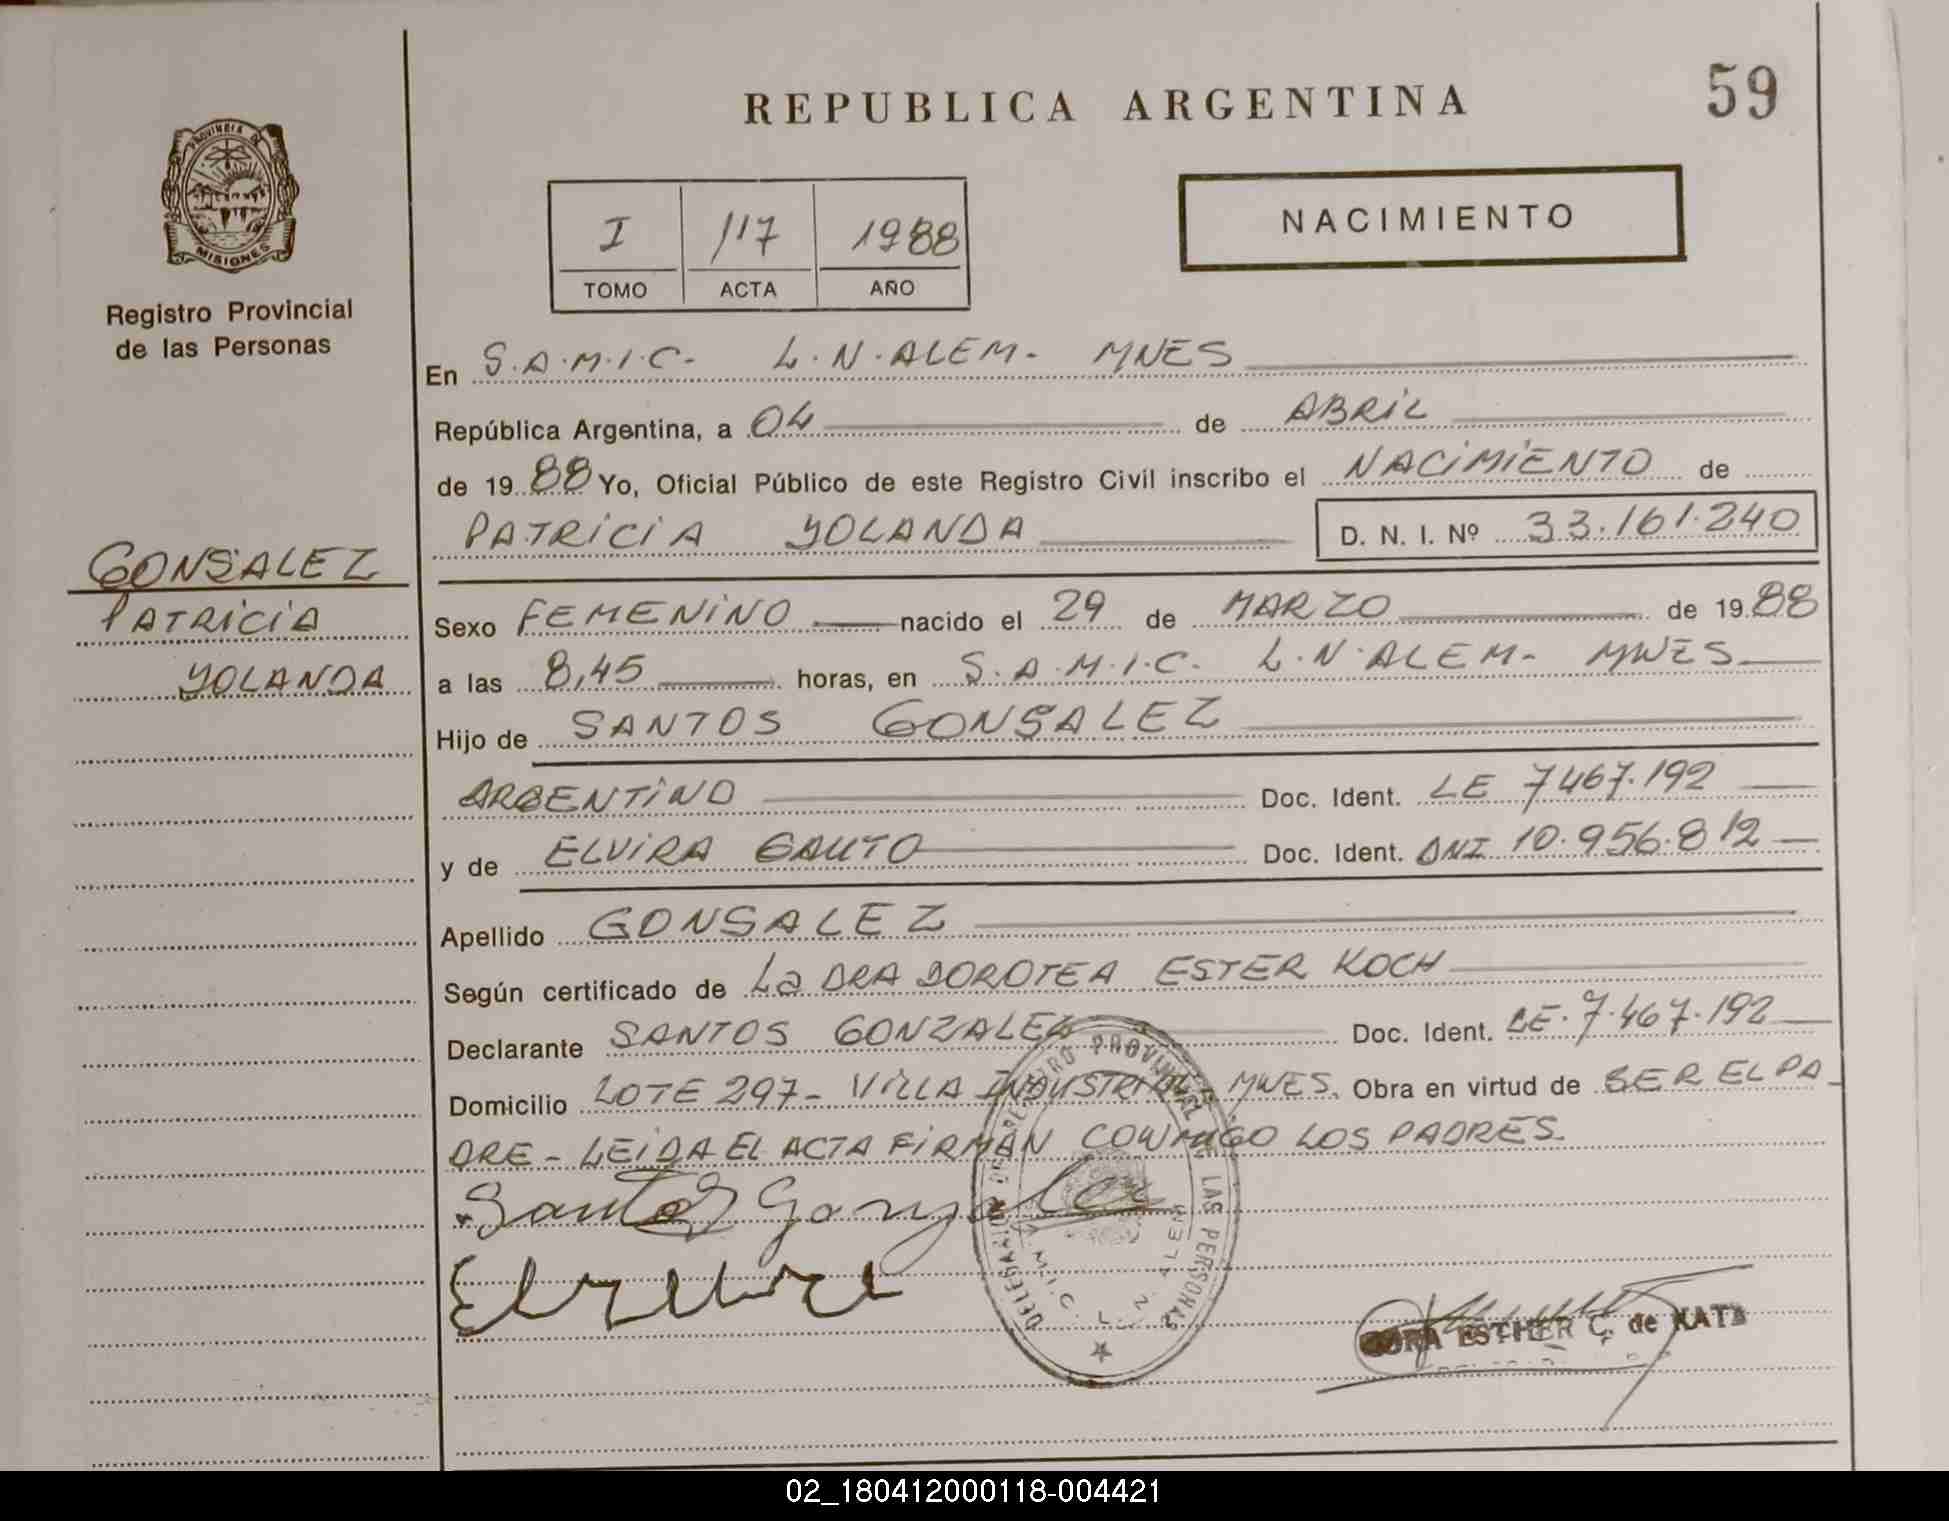 REPUBLICA ARGENTINA
59
PROVINCIA DE
MISIONES
Registro Provincial
de las Personas
I 117 1988
TOMO ACTA AÑO
NACIMIENTO
En S.A.M.I.C- L.N.ALEM- MNES
República Argentina, a 04 de ABRIL
de 1988 Yo, Oficial Público de este Registro Civil inscribo el NACIMIENTO de
PATRICIA YOLANDA D. N. I. Nº 33.161.240
GONSALEZ
PATRICIA
YOLANDA
Sexo FEMENINO nacido el 29 de MARZO de 1988
a las 8,45 horas, en S.A.M.I.C. L.N.ALEM- MNES
Hijo de SANTOS GONSALEZ
ARGENTINO Doc. Ident. LE 7467.192
y de ELVIRA GAUTO Doc. Ident. DNI 10.956.812
Apellido GONSALEZ
Según certificado de La DRA DOROTEA ESTER KOCH
Declarante SANTOS GONZALEZ Doc. Ident. LE.7.467.192
Domicilio LOTE 297- VILLA INDUSTRIAL MNES. Obra en virtud de SER EL PA-
DRE - LEIDA EL ACTA FIRMAN CONMIGO LOS PADRES.
Santos Gonzalez
Elvira
REGISTRO PROVINCIAL DE LAS PERSONAS
DELEGACION
S.A.M.I.C. L. N. ALEM
ESTHER C. de KATZ
02_180412000118-004421